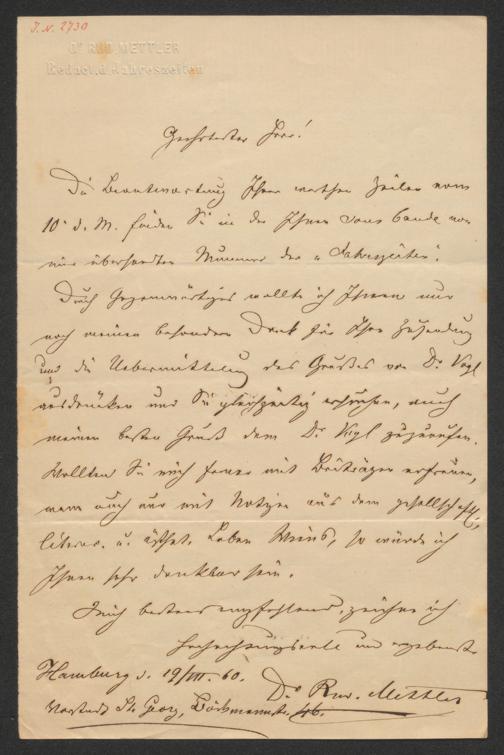 I. N. 2730
Dr RUD. METTLER
Redact. d. Jahreszeiten
Geehrtester Herr!
Die Beantwortung Ihrer werthen Zeilen vom
10. d. M. finden Sie in der Ihnen sous bande von
mir übersandten Nummer der „Jahreszeiten“.
Durch Gegenwärtiges wollte ich Ihnen nur
noch meinen besondern Dank für Ihre Zusendung
und die Uebermittlung des Grußes von Dr Vogl
ausdrücken und Sie gleichzeitig ersuchen, auch
meinen besten Gruß dem Dr Vogl zuzurufen.
Wollten Sie mich ferner mit Beiträgen erfreuen,
wenn auch nur mit Notizen aus dem gesellschaftl.,
literar. u. ästhet. Leben Wiens, so würde ich
Ihnen sehr dankbar sein.
Mich bestens empfehlend, zeichne ich
hochachtungsvoll und ergebenst
Hamburg d. 19/III. 60.
Dr Rud. Mettler
Vorstadt St. Georg, Böckmannstr. 46.